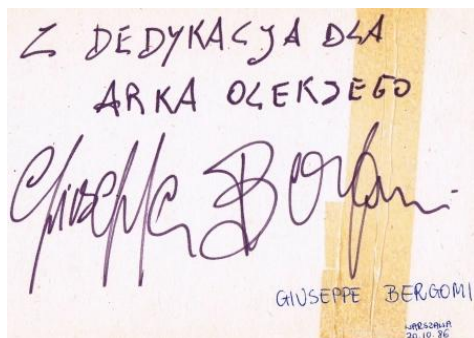 Z DEDYKACJA DLA
ARKA OLEKSEGO
Giuseppe Bergomi
GIUSEPPE BERGOMI
WARSZAWA
20.10.86